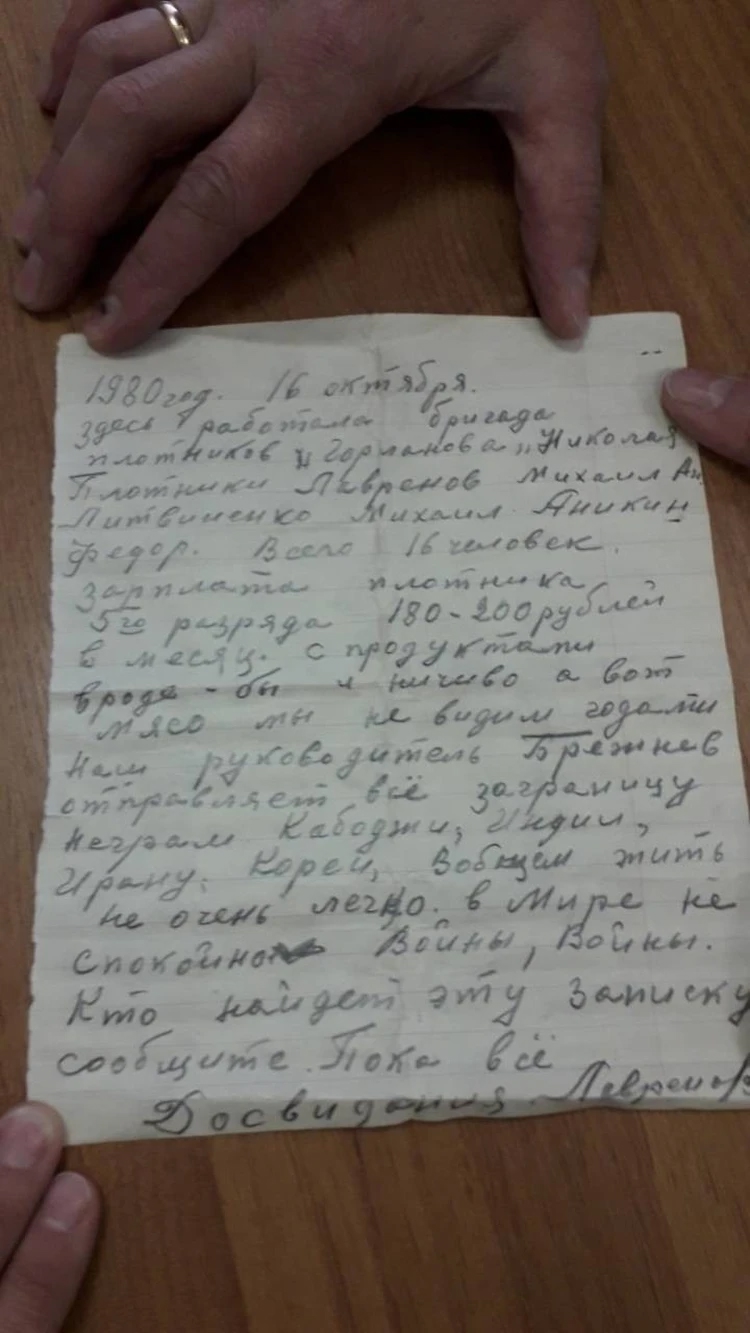 1980 год. 16 октября.
здесь работала бригада
плотников "Горланова" Николая
Плотники Лавренов Михаил Ан.
Литвиненко Михаил Аникин
Федор. Всего 16 человек.
зарплата плотника
5го разряда 180-200 рублей
в месяц. с продуктами
вроде-бы и ничиво а вот
мясо мы не видим годами
наш руководитель Брежнев
отправляет всё заграницу
неграм Кабоджи, Индии,
Ирану, Кореи, Вобщем жить
не очень легко. в Мире не
спокойно Войны, Войны.
Кто найдет эту записку
сообщите. Пока всё
Досвидания. Лавренов